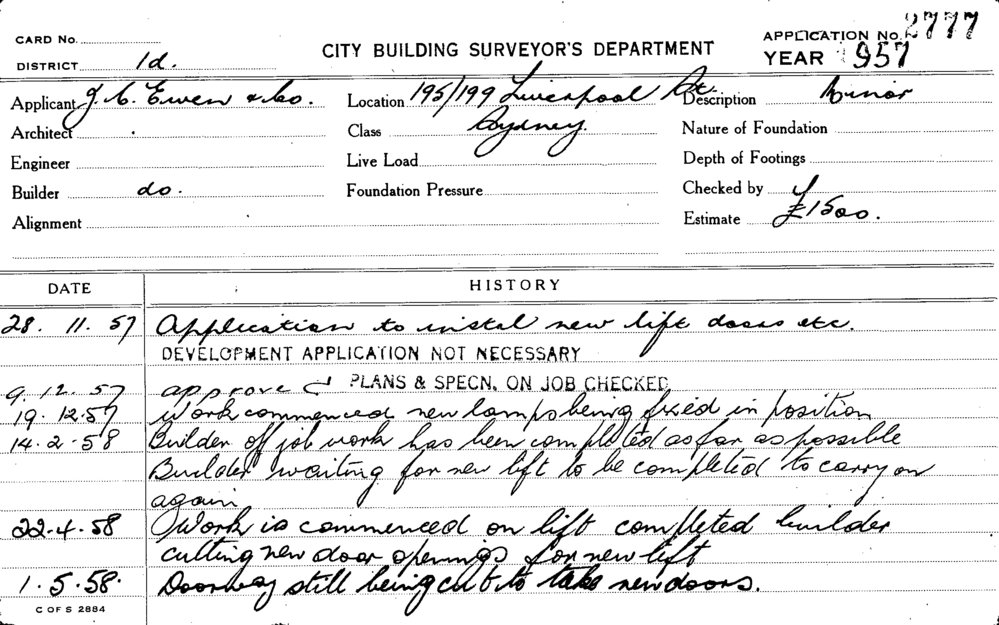 CARD No.
DISTRICT 1d.
CITY BUILDING SURVEYOR'S DEPARTMENT
APPLICATION No. 2777
YEAR 1957
Applicant J. C. Ewen & Co. Location 195/199 Liverpool St. Description Minor
Architect Class Sydney. Nature of Foundation
Engineer Live Load Depth of Footings
Builder do. Foundation Pressure Checked by
Alignment Estimate £1500.
DATE HISTORY
28. 11. 57 Application to instal new lift doors etc.
DEVELOPMENT APPLICATION NOT NECESSARY
9. 12. 57 approved PLANS & SPECN. ON JOB CHECKED
19. 12. 57 Work commenced new lamps being fixed in position
14. 2. 58 Builder of job work has been completed as far as possible
Builder waiting for new lift to be completed to carry on
again
22. 4. 58 Work is commenced on lift completed builder
cutting new door openings for new lift
1. 5. 58. Doorway still being cut to take new doors.
C OF S 2884